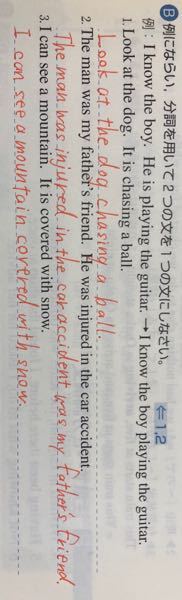 B 例にならい，分詞を用いて2つの文を1つの文にしなさい。 ⇐1,2
例：I know the boy.  He is playing the guitar. → I know the boy playing the guitar.
1. Look at the dog.  It is chasing a ball.
Look at the dog chasing a ball.
2. The man was my father's friend.  He was injured in the car accident.
The man was injured in the car accident was my father's friend.
3. I can see a mountain.  It is covered with snow.
I can see a mountain covered with snow.